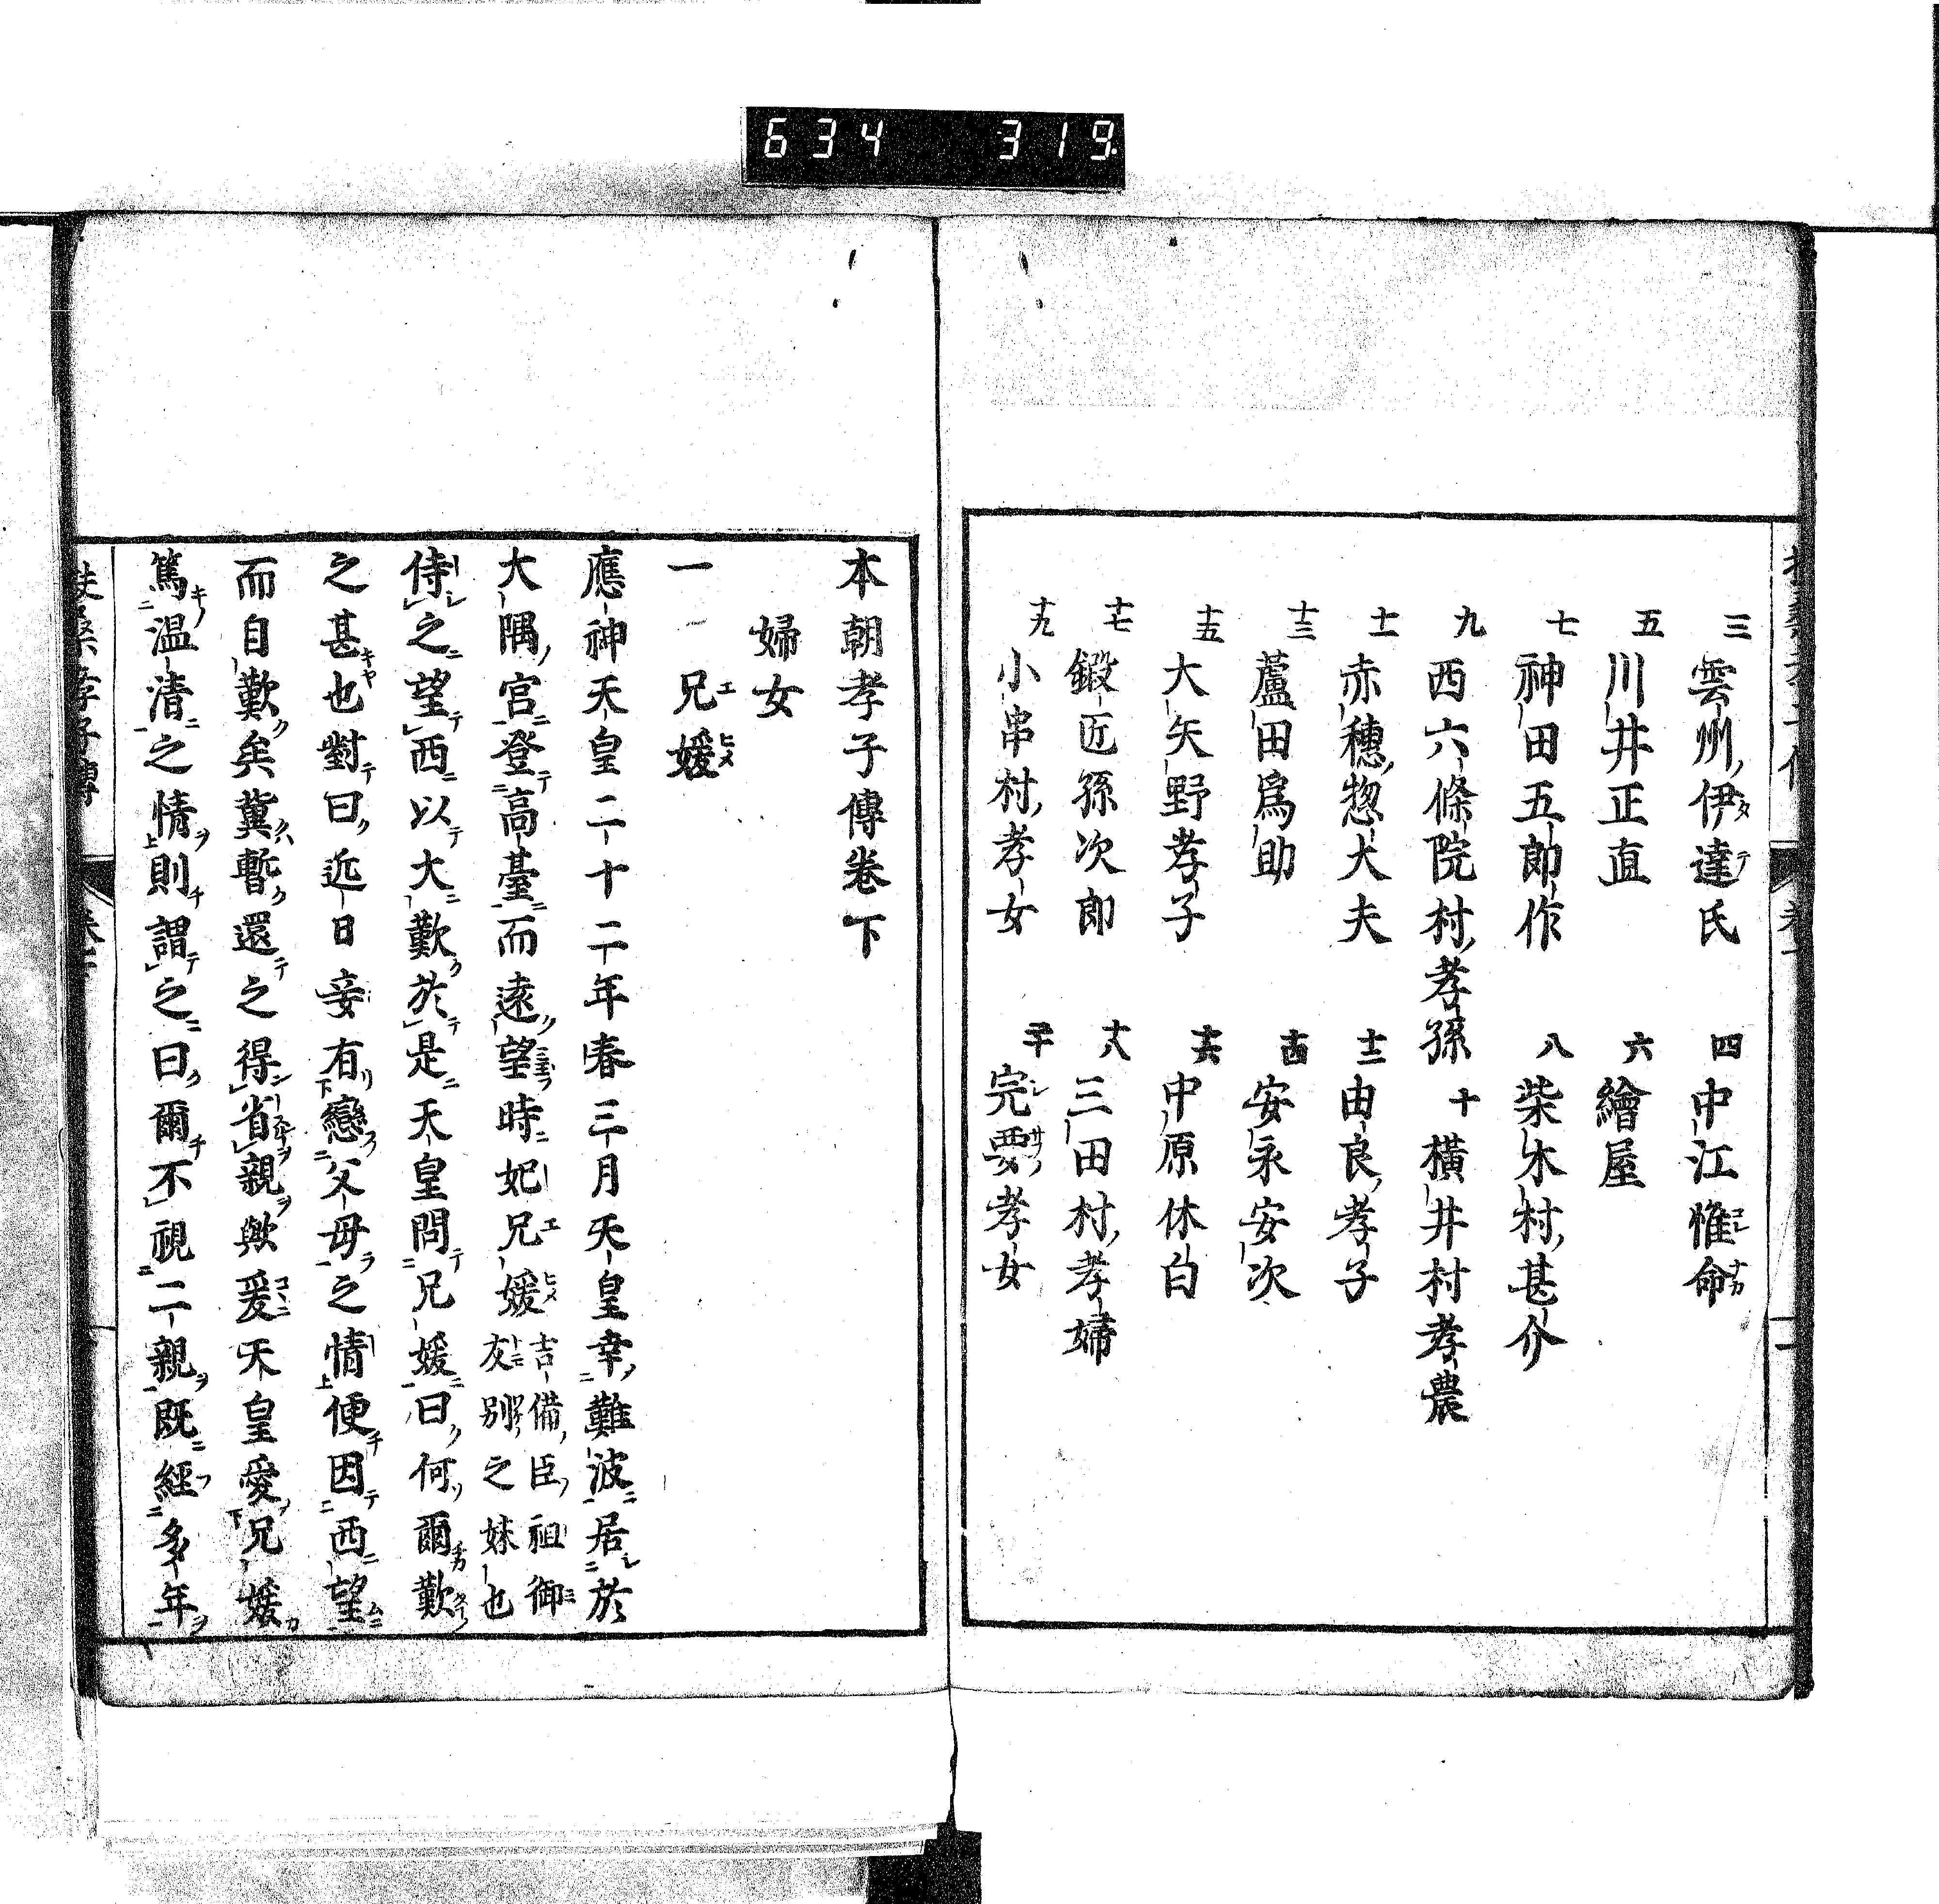 634 319
三 雲州伊達氏 四 中江惟命
五 川井正直 六 繪屋
七 神田五郎作 八 柴木村甚介
九 西六條院村孝孫 十 橫井村孝農
十一 赤穗惣大夫 十二 由良孝子
十三 蘆田爲助 十四 安永安次
十五 大矢野孝子 十六 中原休白
十七 鍛匠孫次郎 十八 三田村孝婦
十九 小串村孝女 二十 完要孝女
本朝孝子傳卷下
婦女
一 兄媛
應神天皇二十二年春三月天皇幸難波居於
大隅宮登高臺而遠望時妃兄媛吉備臣祖御友別之妹也
侍之望西以大歎於是天皇問兄媛曰何爾歎
之甚也對曰近日妾有戀父母之情便因西望
而自歎矣冀暫還之得省親歟爰天皇愛兄媛
篤温凊之情則謂之曰爾不視二親既經多年